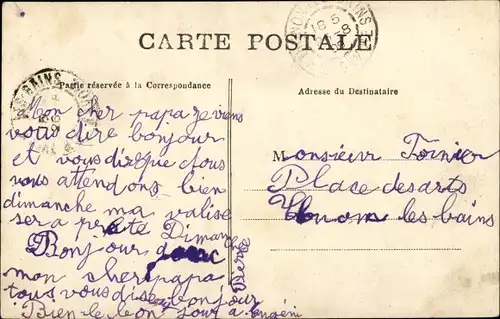 CARTE POSTALE
Partie réservée à la Correspondance
Adresse du Destinataire
Mon cher papa je viens
vous dire bonjour
et vous dire que nous
vous attendons bien
dimanche ma valise
sera prete Dimanche
Bonjour
mon cher papa
tous vous dise bonjour
Bien le bon jour a Eugéni
Monsieur Fornier
Place des arts
Thonon les bains